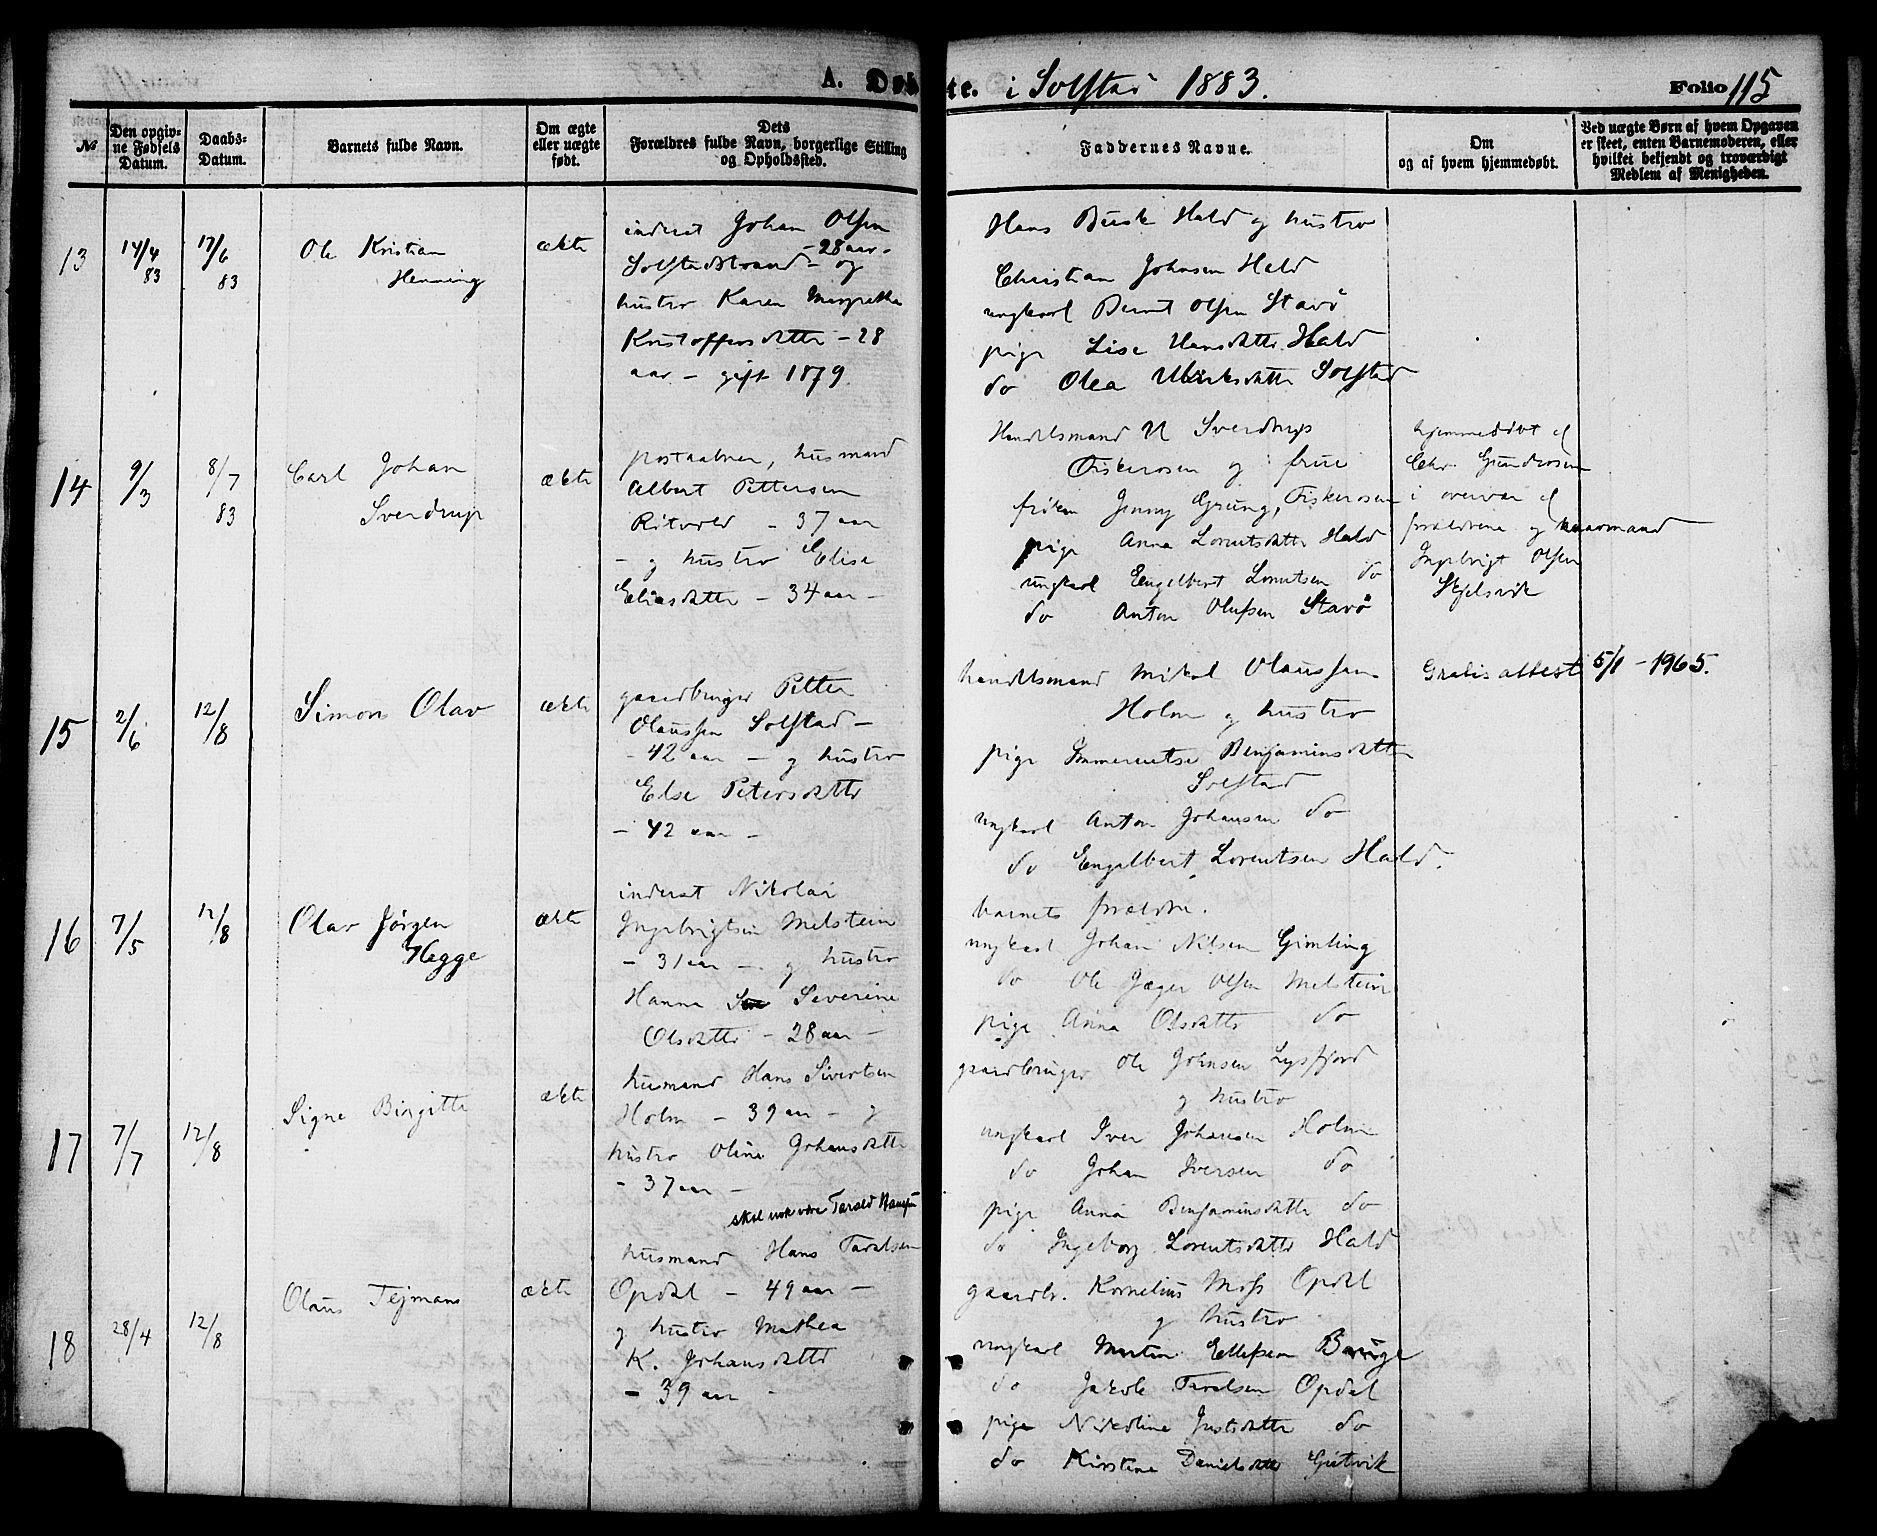 A. Døbte. i Solstad 1883. Folio 115
No
Den opgiv-
ne Fødsels
Datum.
Daabs-
Datum.
Barnets fulde Navn.
Om ægte
eller uægte
født.
Dets
Forældres fulde Navn, borgerlige Stilling
og Opholdssted.
Faddernes Navne.
Om
og af hvem hjemmedøbt.
Ved uægte Børn af hvem Opgaven
er skeet, enten Barnemoderen, eller
hvilket bekjendt og troværdigt
Medlem af Menigheden.
13
14/4
83
17/6
83
Ole Kristian
Henning
ækte
inderst Johan Olsen
- 28 aar -
Solstadstrand - og
hustro Karen Margrethe
Kristoffersdatter - 28
aar - gift 1879.
Hans Busk Hald og hustro
Christian Johnsen Hald
ungkarl Bernt Olsen Stavø
pige Lise Hansdatter Hald
do Olea Ulriksdatter Solstad
14
9/3
8/7
83
Carl Johan
Sverdrup
ækte
postaabner, husmand
Albert Pettersen
- 37 aar
- og hustro Elise
Eliasdatter - 34 aar -
Handelsmand U Sverdrup
Fiskerosen og frue
frøken Jenny Grung, Fiskerosen
pige Anna Lorentsdatter Hald
ungkarl Engelbert Lorentsen do
do Anton Olufsen Stavø
hjemmedøbt af
Chr. Gundrosen
i overvær af
forældrene og
Ingebrigt Olsen
Skjelsvik
15
2/6
12/8
Simon Olav
ækte
gaardbruger Petter
Olaussen Solstad -
- 42 aar - og hustro
Else Petersdatter
- 42 aar -
handelsmand Mikal Olaussen
Holm og hustro
pige Emmerentse Benjaminsdatter
Solstad
ungkarl Anton Johansen do
do Engelbert Lorentsen Hald.
Gratis attest 5/1 - 1965.
16
7/5
12/8
Olav Jørgen
Hegge
ækte
inderst Nikolai
Ingebrigtsen Melstein
- 31 aar - og hustro
Hanna Severine
Olsdatter - 28 aar -
barnets forældre.
ungkarl Johan Nilsen Gimling
do Ole Jæger Olsen Melstein
pige Anna Olsdatter do
17
7/7
12/8
Signe Birgitte
ækte
husmand Hans Sivertsen
Holm - 39 aar - og
hustro Oline Johansdatter
- 37 aar -
gaardbruger Ole Johnsen Lysfjord
og hustro
ungkarl Iver Johansen Holm
do Johan Iversen do
pige Anna Benjaminsdatter do
do Ingeborg Lorentsdatter Hald
18
28/4
12/8
Olaus Tejmans
ækte
skal nok være Tarald Hansen
husmand Hans Taralsen
Opdal - 49 aar -
og hustro Mathea
K. Johansdatter
- 39 aar -
gaardbr. Kornelius Moss Opdal
og hustro
ungkarl Martin Ellefsen
do Jakob Taralsen Opdal
pige Nikoline Justsdatter do
do Kirstine Danielsdatter